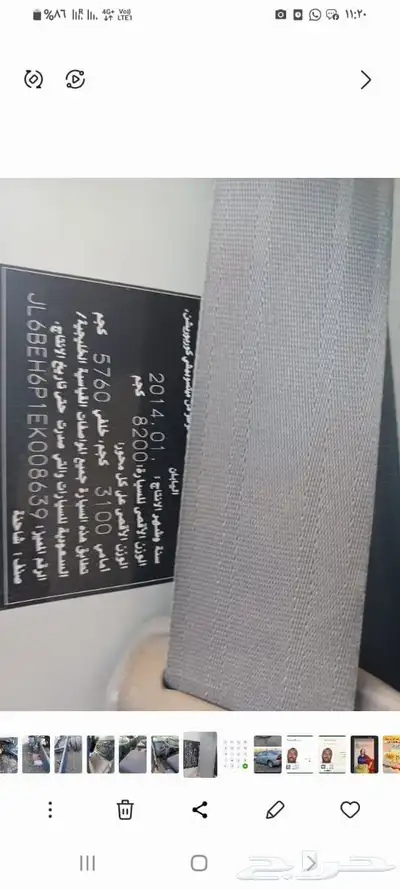 %٨٦
4G+
Vo))
LTE1
١١:٢٠
ميتسوبيشي كوربوريشن،
اليابان
سنة وشهر الانتاج: 2014.01.
الوزن الأقصى للسيارة: 8200 كجم
الوزن الأقصى على كل محور:
امامي 3100 كجم، خلفي 5760 كجم
تطابق هذه السيارة جميع المواصفات القياسية الخليجية/
السعودية للسيارات والتي صدرت حتى تاريخ الانتاج.
الرقم المميز: JL6BEH6P1EK008639
صنف: شاحنة
حراج